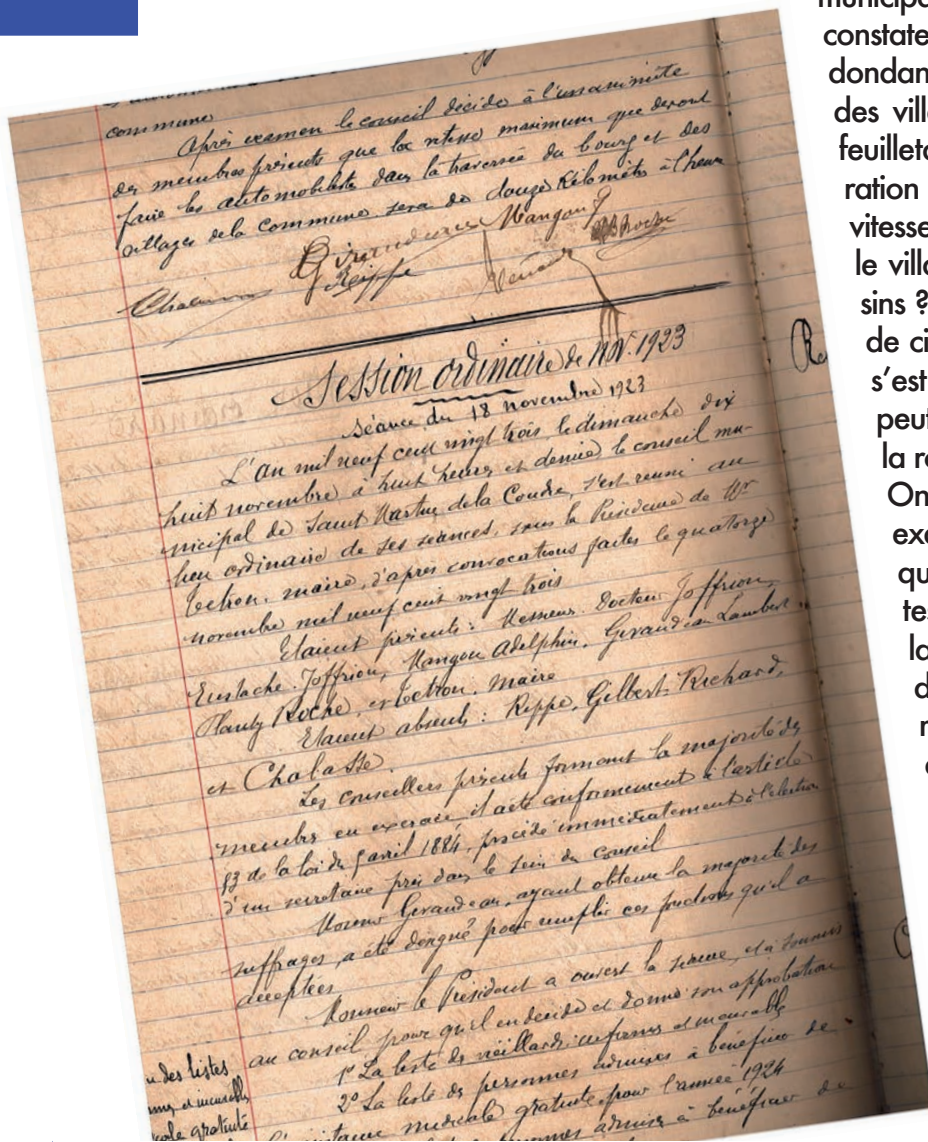 commune
Après examen le conseil décide à l'unanimité
des membres présents que la vitesse maximum que devront
faire les automobiliste dans la traversée du bourg et des
villages de la commune sera de douze Kilomètres à l'heure
Girandeau Mangou
Rippe Roche
Session ordinaire de Nov. 1923
Séance du 18 novembre 1923
L'an mil neuf cent vingt trois le dimanche dix
huit novembre à huit heures et demie le conseil mu-
nicipal de Saint Martin de la Coudre, s'est réuni au
lieu ordinaire de ses séances, sous la Présidence de Mr
maire, d'après convocations faites le quatorze
novembre mil neuf cent vingt trois
Etaient présents : Messieurs Docteur Joffrion,
Eustache Joffrion, Mangou Adelphin, Girandeau Lambert
Roche, et maire
Etaient absents : Rippe, Gilbert Richard,
et Chalasse.
Les conseillers présents formant la majorité des
membres en exercice il a été conformément à l'article
53 de la loi du 5 avril 1884, procédé immédiatement à l'élection
d'un secrétaire pris dans le sein du conseil
Monsieur Girandeau, ayant obtenu la majorité des
suffrages, a été désigné pour remplir ces fonctions qu'il a
acceptées
Monsieur le Président a ouvert la séance, et a soumis
au conseil pour qu'il en décide et donne son approbation
1° La liste des vieillards infirmes et incurable
2° La liste des personnes admises à bénéficier de
l'assistance médicale gratuite pour l'année 1924
personnes admises à bénéficier de
des listes
et incurables
gratuité
constate
des vill
vitesse
le villa
sins ?
de ci
s'est
peut
la r
On
exc
qu
te
la
d